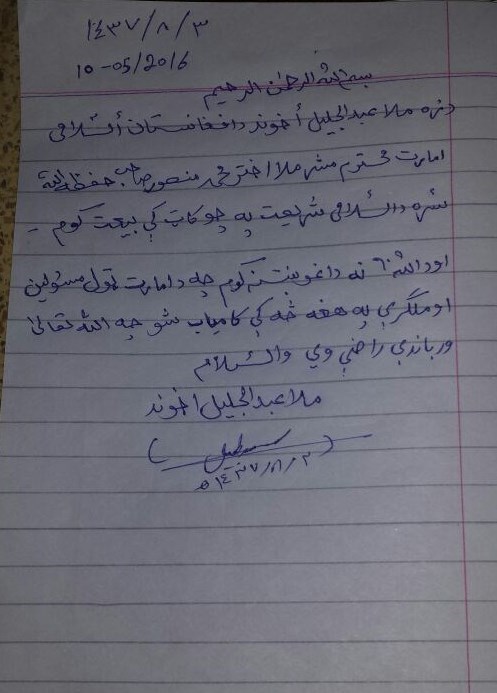 ۱٤۳۷/۸/۳
10-05/2016
بسم الله الرحمن الرحیم
دزه ملا عبدالجلیل أخوند دافغانستان أسلامی
امارت محترم مشر ملا اختر محمد منصور صاحب حفظه الله
سره د اسلامی شریعت په چوکاټ کې بیعت کوم -
او د الله نه داغوښتنه کوم چه د امارت ټول مسئولین
او ملګري په هغه څه کې کامیاب شو چه الله تعالی
ورباندې راضي وي والسلام
ملا عبدالجلیل اخوند
۱٤۳۷/۸/۳ ه